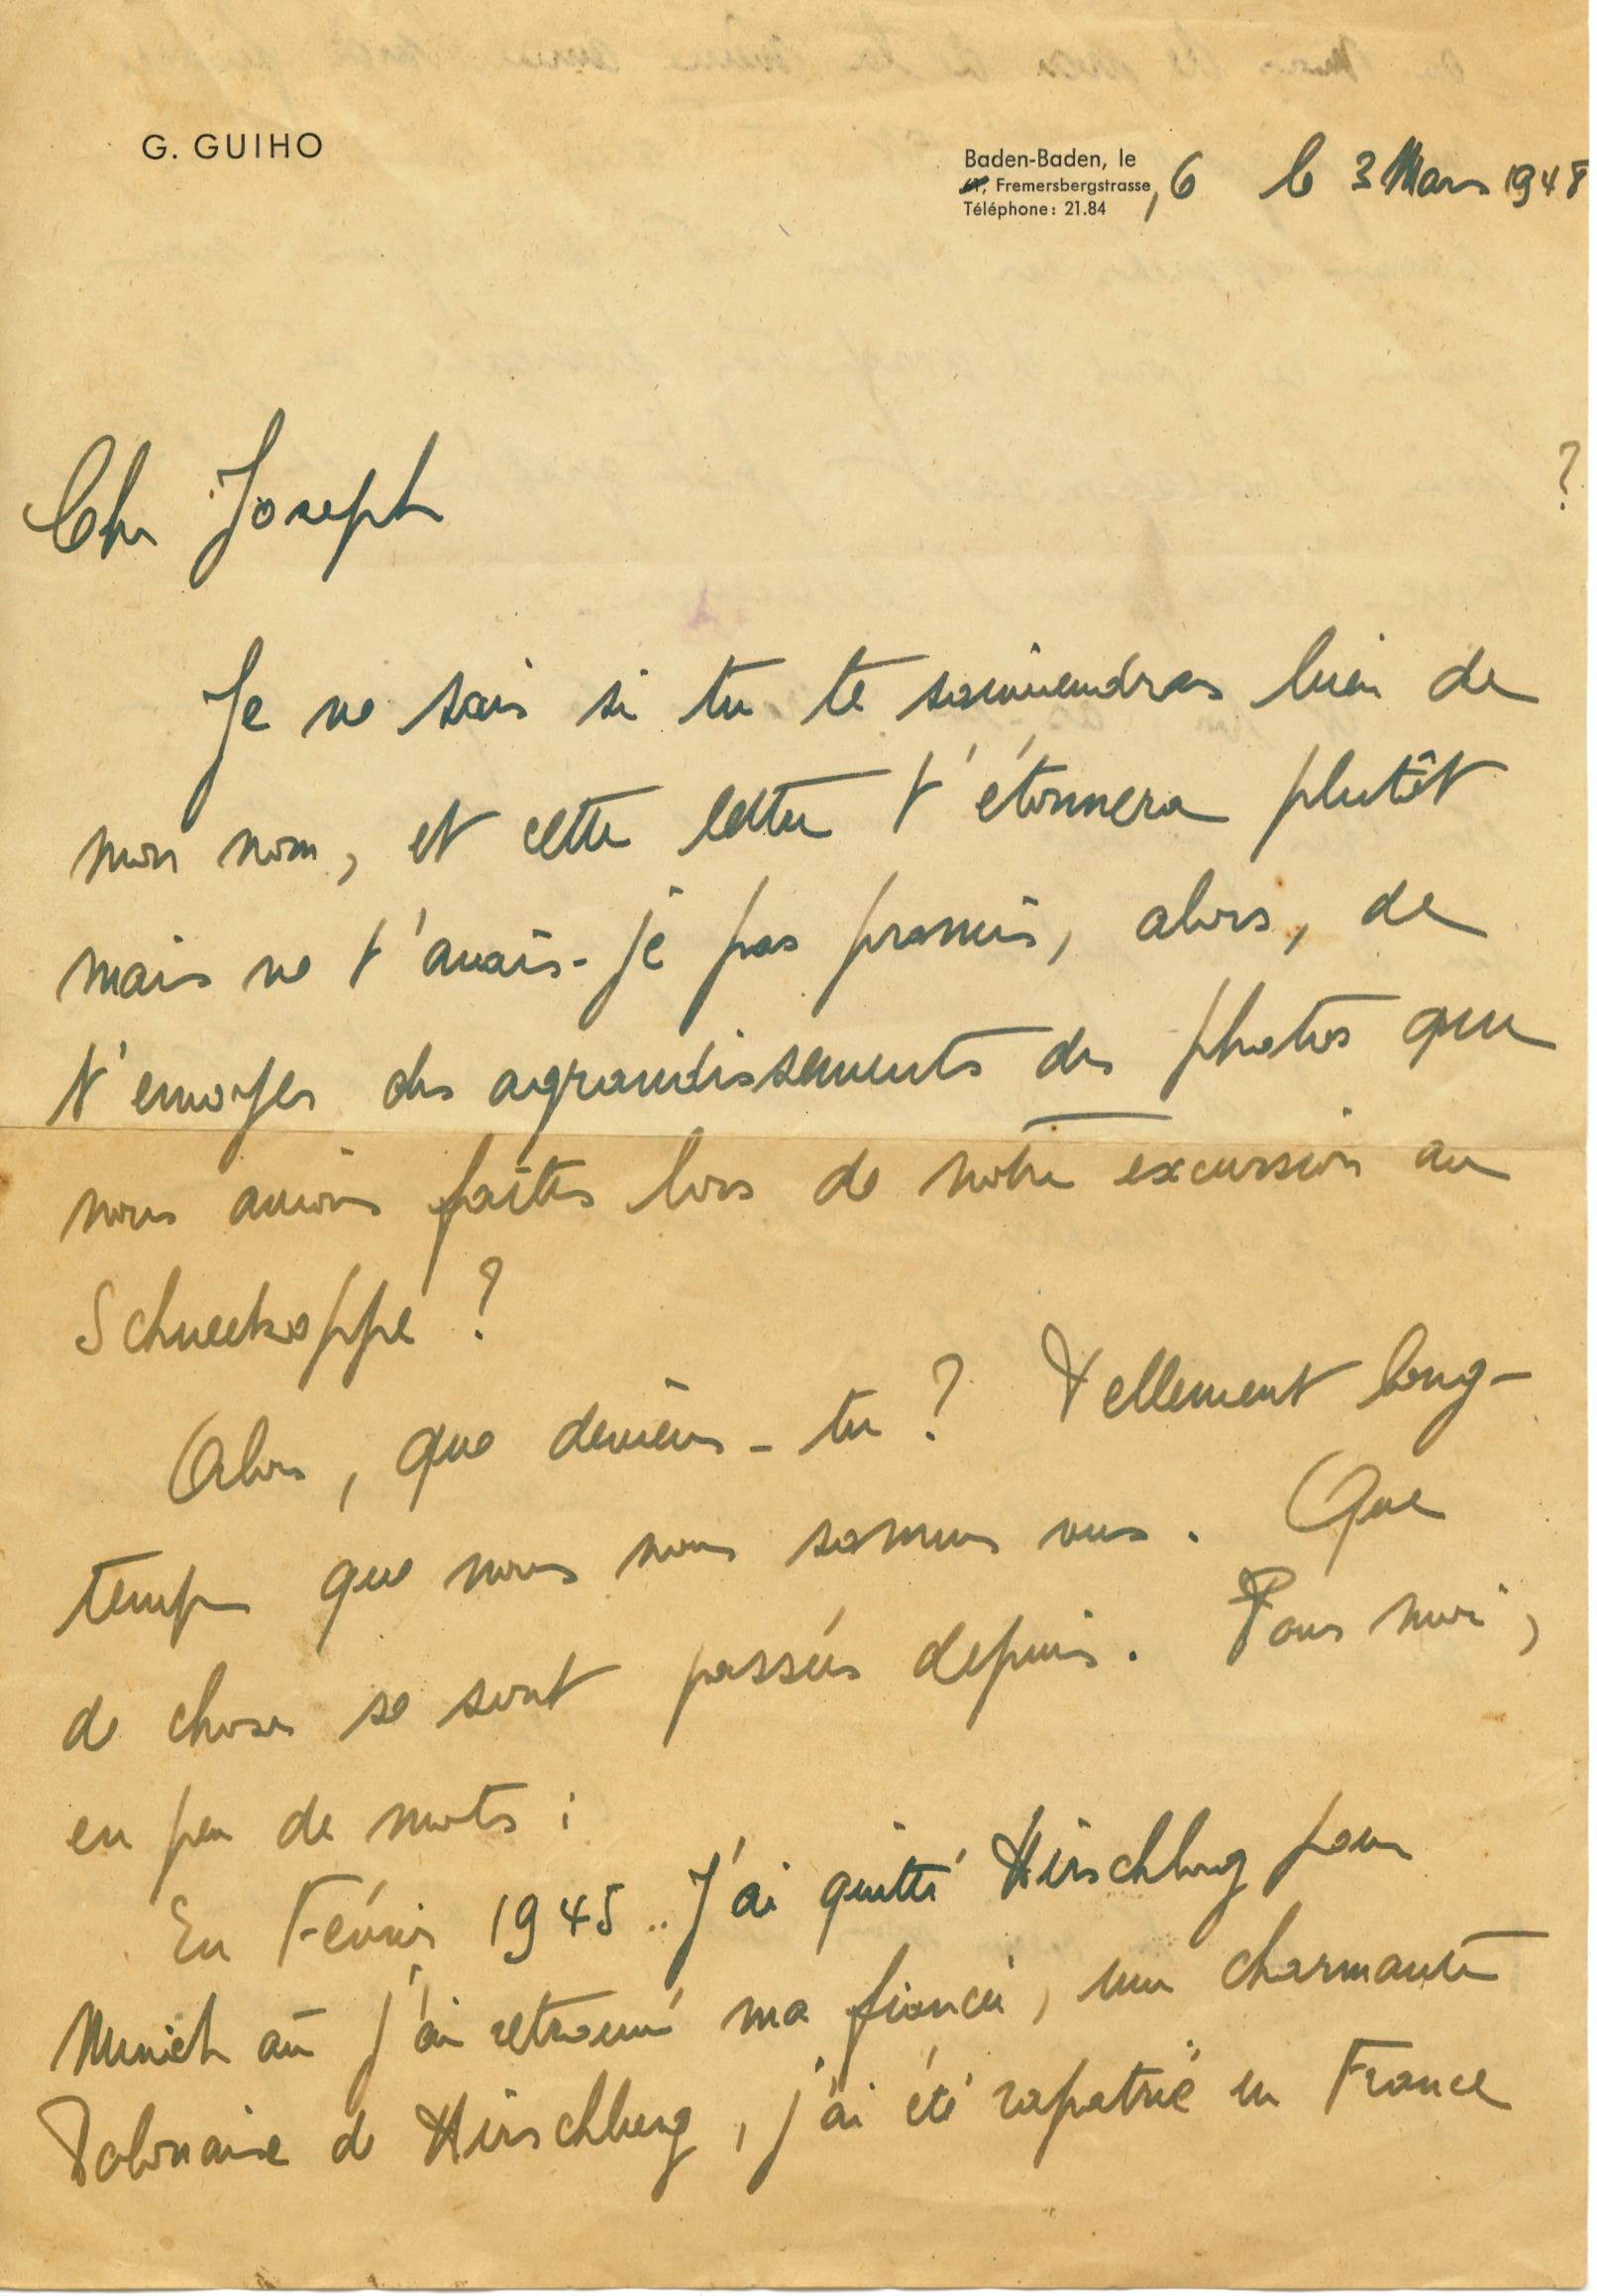 G. GUIHO
Baden-Baden, le
Fremersbergstrasse, 6 le 3 Mars 1948
Téléphone: 21.84
Cher Joseph
?
Je ne sais si tu te souviendras bien de
mon nom, et cette lettre t'étonnera plutôt
mais ne t'avais-je pas promis, alors, de
t'envoyer des agrandissements des photos que
nous avions faites lors de notre excursion au
Schneekoppe ?
Alors, que deviens-tu ? Tellement long-
temps que nous nous sommes vus. Que
de choses se sont passées depuis. Pour moi,
en peu de mots :
En Février 1945.. J'ai quitté Hirschberg pour
Munich où j'ai retrouvé ma fiancée, une charmante
Polonaise de Hirschberg, j'ai été rapatrié en France